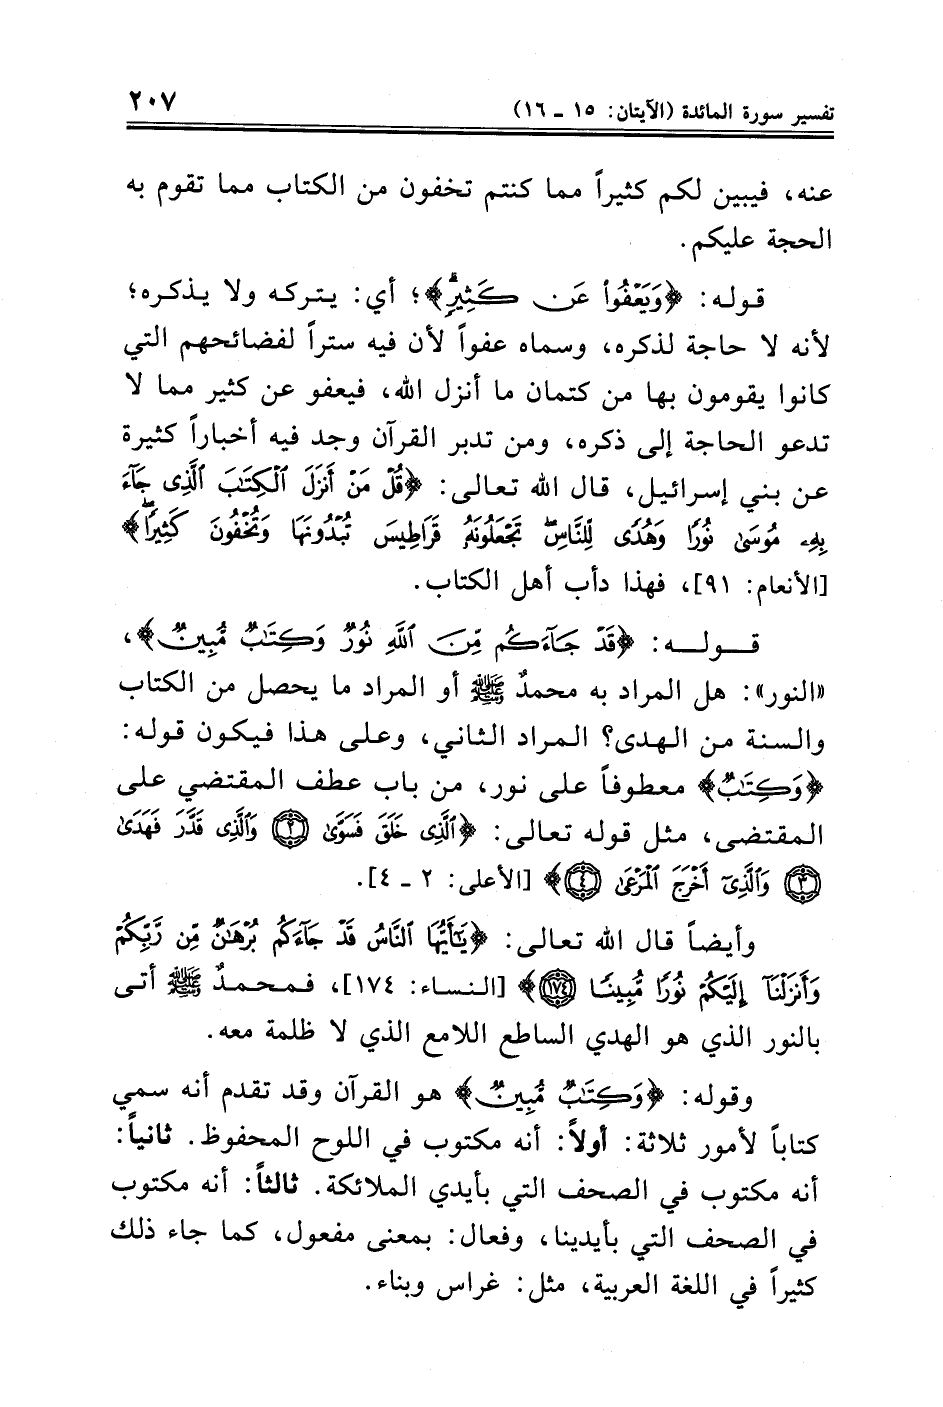 تفسير سورة المائدة (الآيتان: ١٥ ـ ١٦)
٢٠٧
عنه، فيبين لكم كثيراً مما كنتم تخفون من الكتاب مما تقوم به
الحجة عليكم.
قوله: ﴿وَيَعْفُوا۟ عَن كَثِيرٍۢ﴾؛ أي: يتركه ولا يذكره؛
لأنه لا حاجة لذكره، وسماه عفواً لأن فيه ستراً لفضائحهم التي
كانوا يقومون بها من كتمان ما أنزل الله، فيعفو عن كثير مما لا
تدعو الحاجة إلى ذكره، ومن تدبر القرآن وجد فيه أخباراً كثيرة
عن بني إسرائيل، قال الله تعالى: ﴿قُلْ مَنْ أَنزَلَ ٱلْكِتَٰبَ ٱلَّذِى جَآءَ
بِهِۦ مُوسَىٰ نُورًا وَهُدًى لِّلنَّاسِ ۖ تَجْعَلُونَهُۥ قَرَاطِيسَ تُبْدُونَهَا وَتُخْفُونَ كَثِيرًا ۖ﴾
[الأنعام: ٩١]، فهذا دأب أهل الكتاب.
قـولـه: ﴿قَدْ جَآءَكُم مِّنَ ٱللَّهِ نُورٌ وَكِتَٰبٌ مُّبِينٌ﴾،
«النور»: هل المراد به محمدٌ ﷺ أو المراد ما يحصل من الكتاب
والسنة من الهدى؟ المراد الثاني، وعلى هذا فيكون قوله:
﴿وَكِتَٰبٌ﴾ معطوفاً على نور، من باب عطف المقتضي على
المقتضى، مثل قوله تعالى: ﴿ٱلَّذِى خَلَقَ فَسَوَّىٰ ٢ وَٱلَّذِى قَدَّرَ فَهَدَىٰ
٣ وَٱلَّذِىٓ أَخْرَجَ ٱلْمَرْعَىٰ ٤﴾ [الأعلى: ٢ ـ ٤].
وأيضاً قال الله تعالى: ﴿يَٰٓأَيُّهَا ٱلنَّاسُ قَدْ جَآءَكُم بُرْهَٰنٌ مِّن رَّبِّكُمْ
وَأَنزَلْنَآ إِلَيْكُمْ نُورًا مُّبِينًا ١٧٤﴾ [النساء: ١٧٤]، فمحمدٌ ﷺ أتى
بالنور الذي هو الهدي الساطع اللامع الذي لا ظلمة معه.
وقوله: ﴿وَكِتَٰبٌ مُّبِينٌ﴾ هو القرآن وقد تقدم أنه سمي
كتاباً لأمور ثلاثة: أولاً: أنه مكتوب في اللوح المحفوظ. ثانياً:
أنه مكتوب في الصحف التي بأيدي الملائكة. ثالثاً: أنه مكتوب
في الصحف التي بأيدينا، وفعال: بمعنى مفعول، كما جاء ذلك
كثيراً في اللغة العربية، مثل: غراس وبناء.